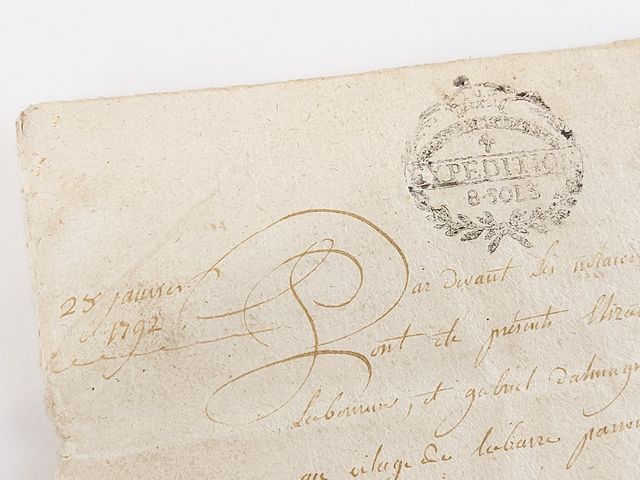 EXPEDITION
8 SOLS
28 janvier
1792
Par devant les notaires
sont été présents
Laboureur, et gabriel
au vilage de labarre